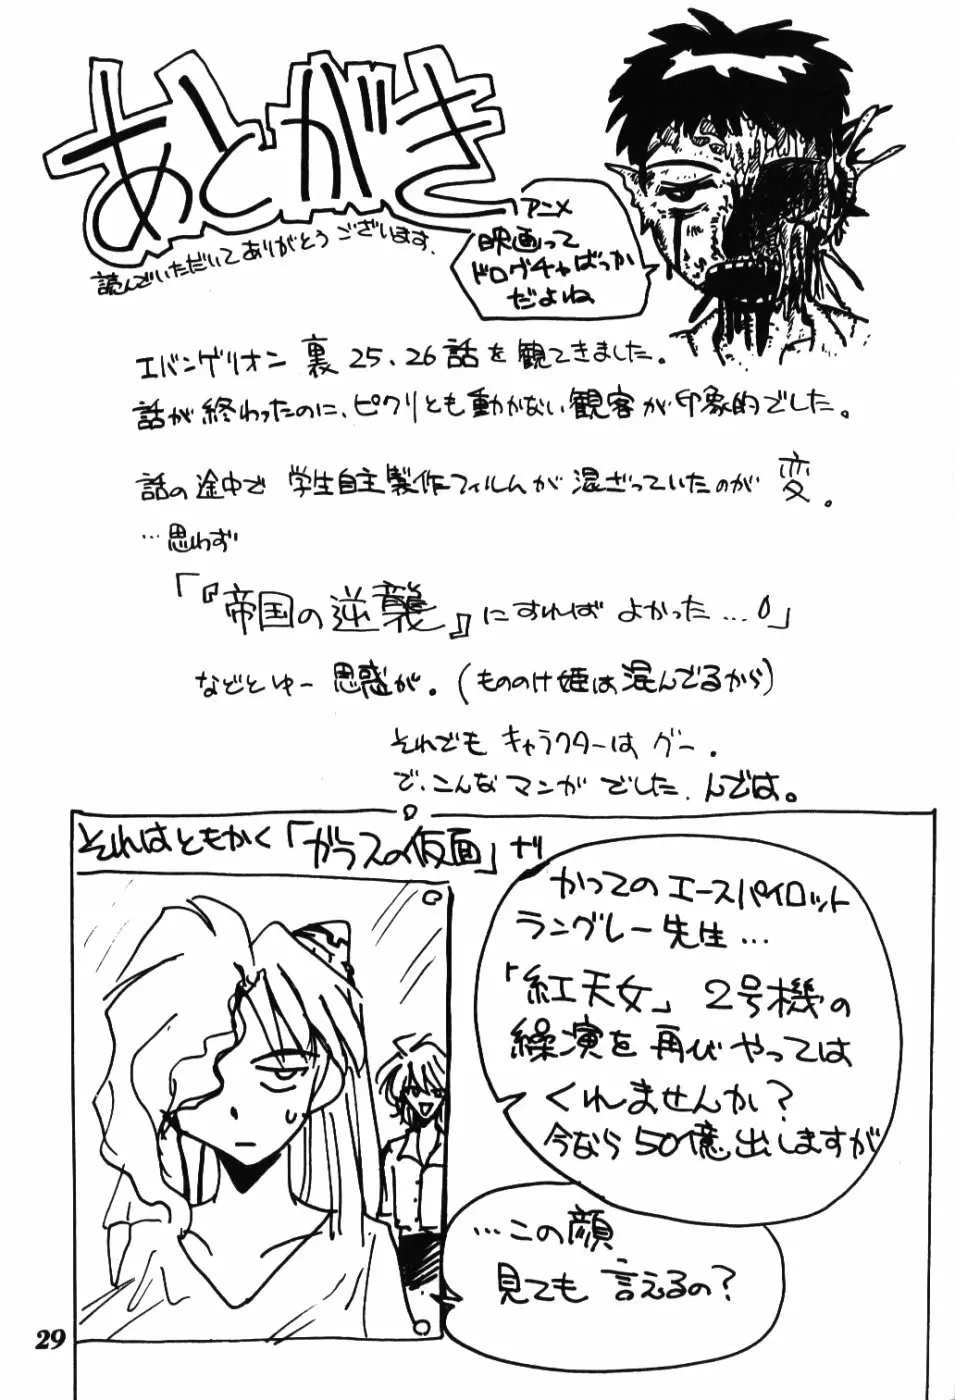 あとがき
読んでいただいてありがとうございます。
アニメ
映画って
ドログチャばっか
だよね
エバンゲリオン 裏 25、26話を観てきました。
話が終わったのに、ピクリとも動かない観客が印象的でした。
話の途中で 学生自主製作フィルムが混ざっていたのが変。
…思わず
「『帝国の逆襲』にすればよかった…。」
などとゆー思惑が。(もののけ姫は混んでるから)
それでもキャラクターはグー。
で、こんなマンガでした。んでは。
それはともかく「ガラスの仮面」ナリ
かつてのエースパイロット
ラングレー先生…
「紅天女」2号機の
操演を再びやっては
くれませんか?
今なら50億出しますが
…この顔
見ても言えるの?
29